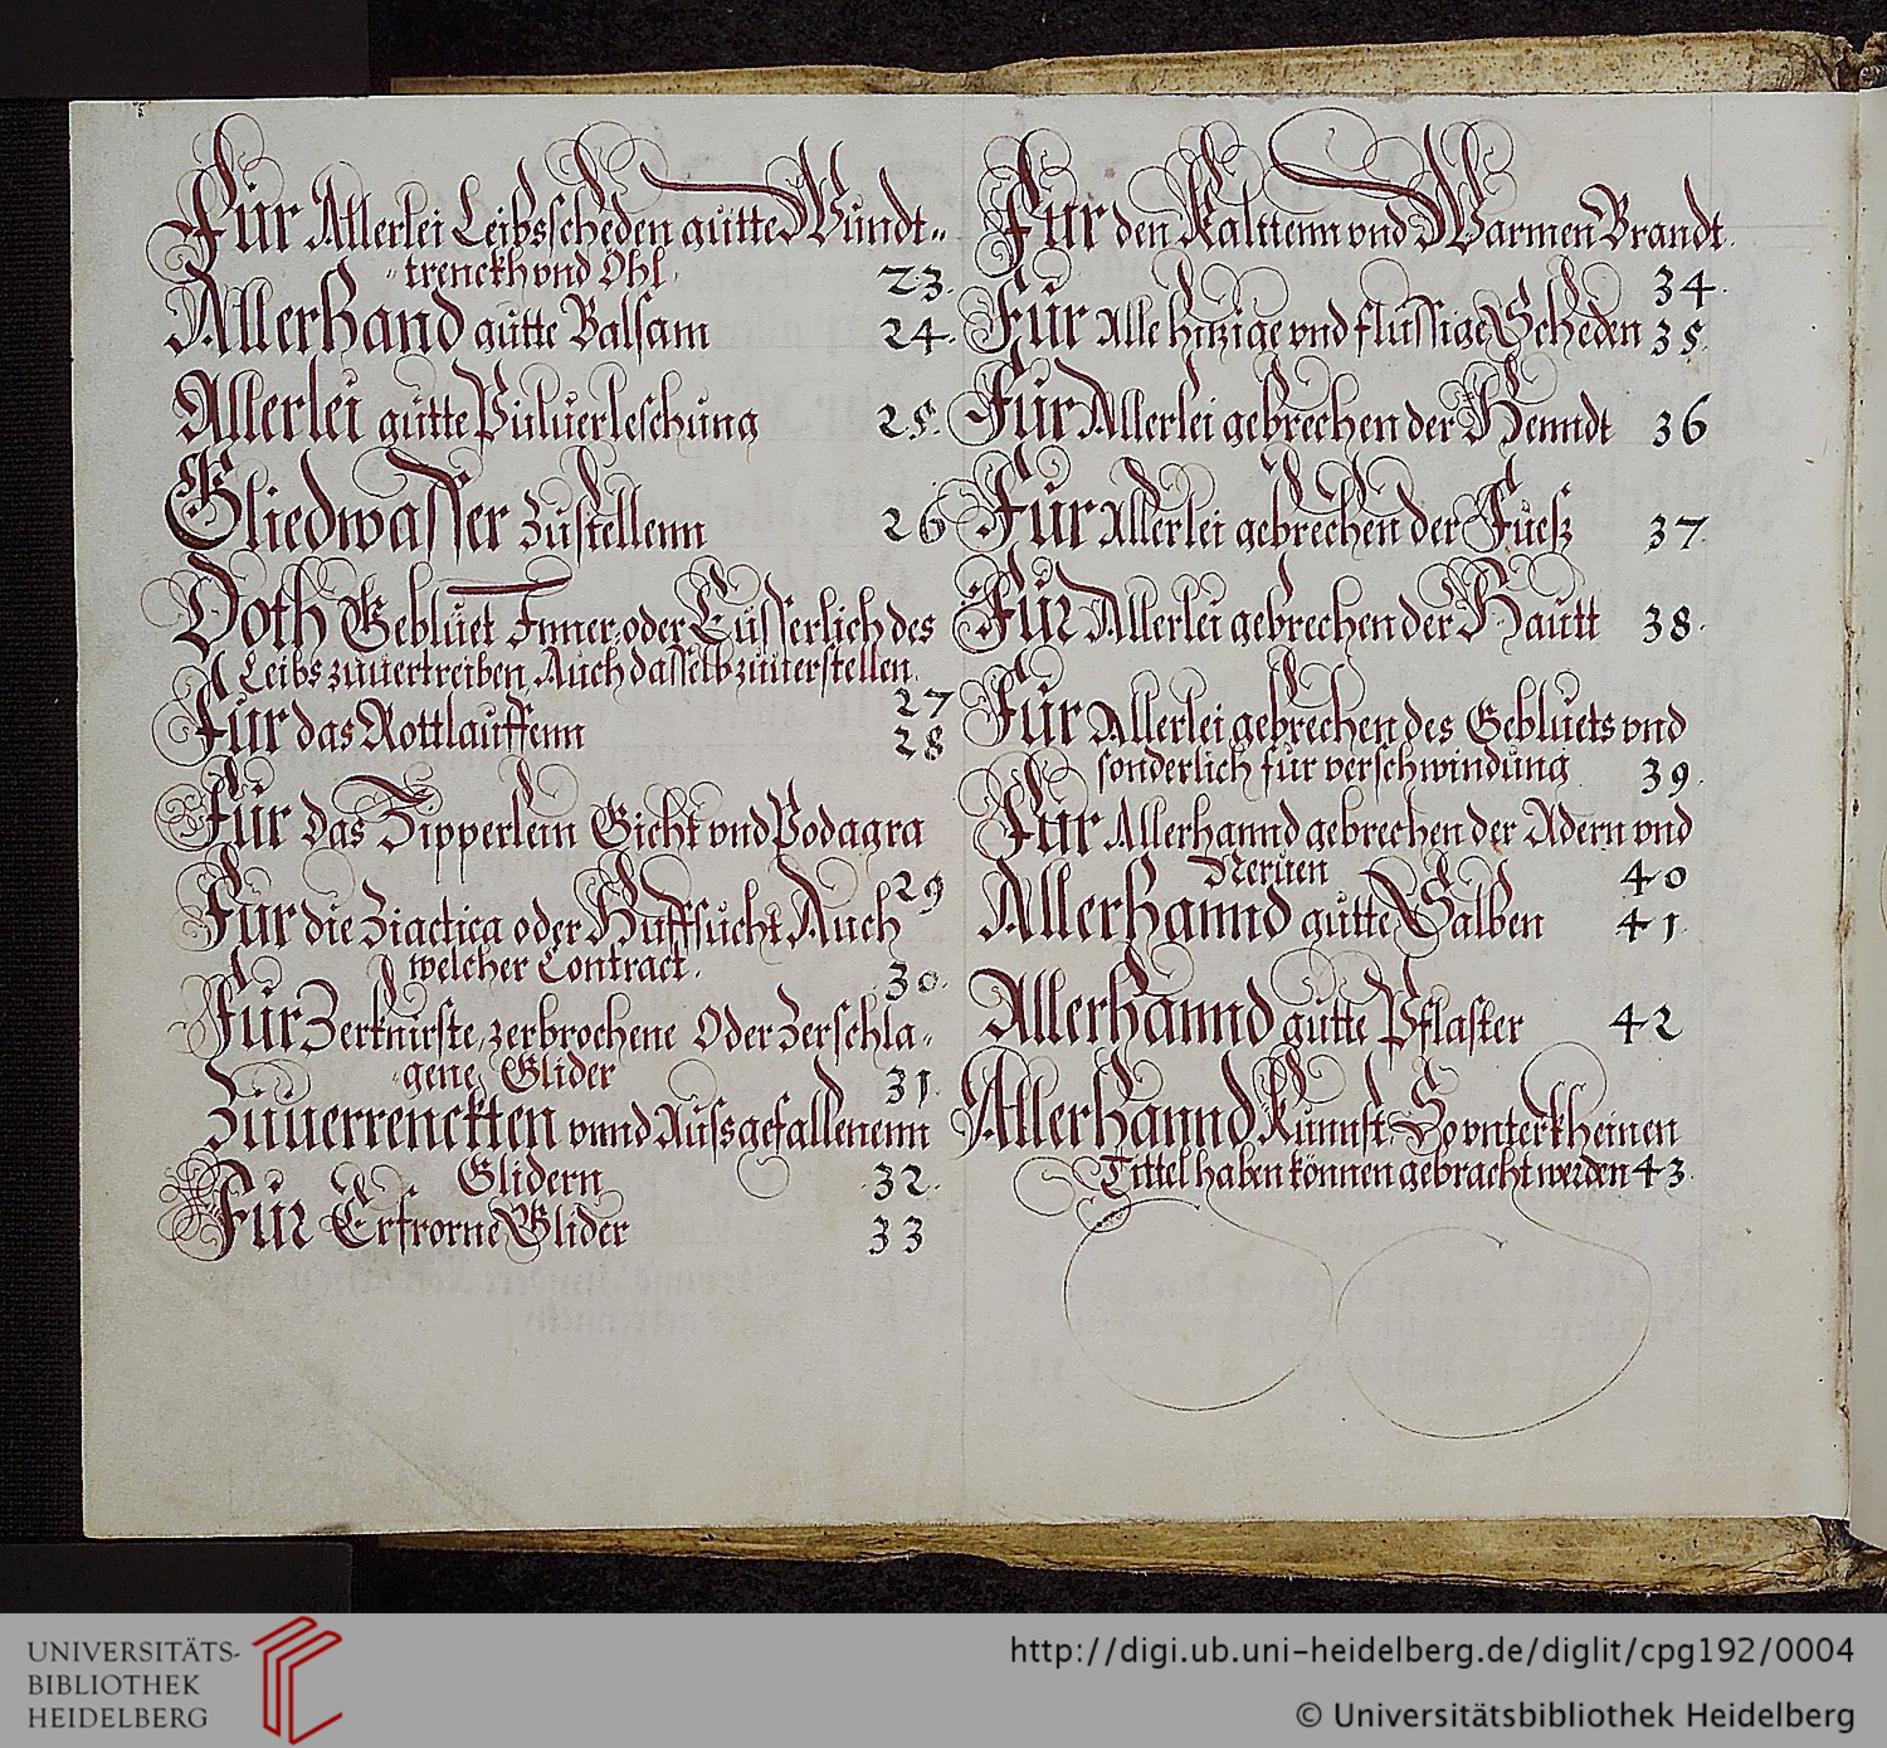 Für Allerlei Leibsscheden gütte Wündt„
„trenckh vnd Öhl. 23.
Allerhand gütte Balsam 24.
Allerlei gütte Püluerleschung 25.
Gliedwasser zůstellenn 26
Doth Geblüet Inner: oder Eüsserlich des
Leibs züuertreiben, Auch dasselb züuerstellen. 27
Für das Rottlauffenn 28
Für das Zipperlein Gicht vnd Podagra 29
Für die Ziactica oder Hüffsücht Auch
welcher Contract. 30.
Für Zerknirste, zerbrochene Oder Zerschla„
„gene, Glider 31.
Züuerrenckten vnnd Aüssgefallenenn
Glidern 32.
Für Erfrorne Glider 33
Für den Kalttenn vnd Warmen Brandt.
34.
Für Alle hitzige vnd flüssige Scheden 35.
Für Allerlei gebrechen der Henndt 36
Für Allerlei gebrechen der Füesz 37.
Für Allerlei gebrechen der Hautt 38.
Für Allerlei gebrechen des Geblüets vnd
sonderlich für verschwindüng 39.
Für Allerhannd gebrechen der Adern vnd
Nerüen 40
Allerhannd gütte Salben 41.
Allerhannd gütte Pflaster 42
Allerhannd Künnst, So vnterkheinen
Tittel haben können gebracht werden 43.
UNIVERSITÄTS-
BIBLIOTHEK
HEIDELBERG
http://digi.ub.uni-heidelberg.de/diglit/cpg192/0004
© Universitätsbibliothek Heidelberg